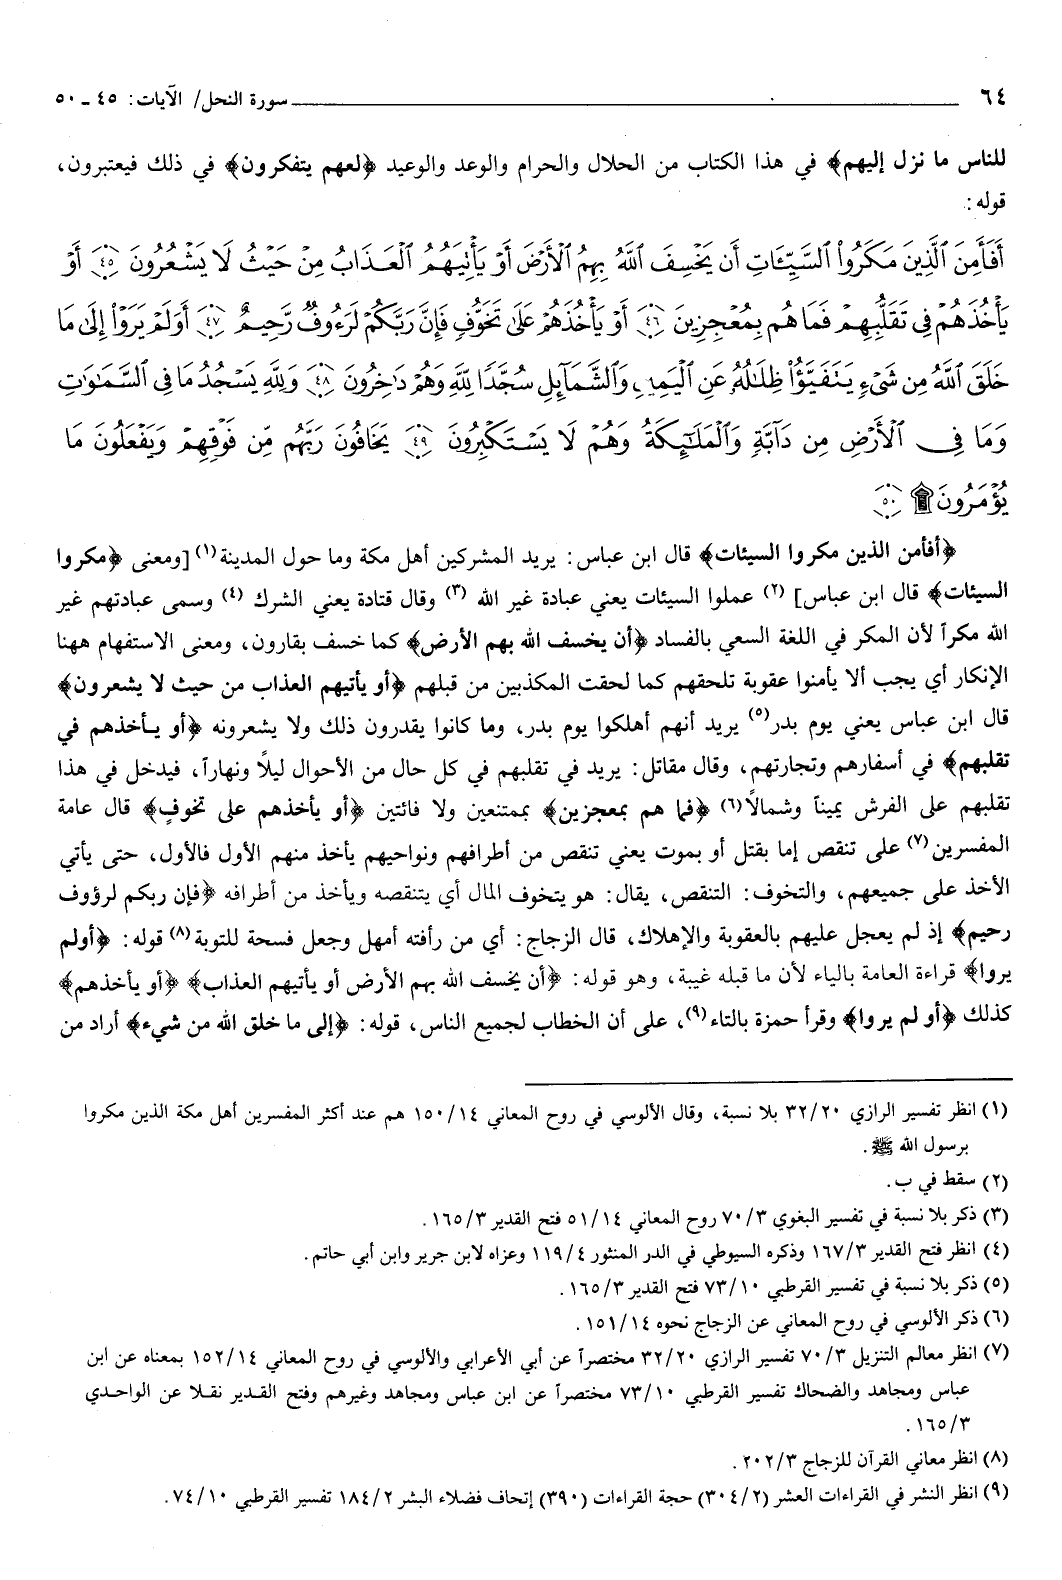 ٦٤ سورة النحل/ الآيات: ٤٥ ـ ٥٠
للناس ما نزل إليهم﴾ في هذا الكتاب من الحلال والحرام والوعد والوعيد ﴿لعهم يتفكرون﴾ في ذلك فيعتبرون،
قوله:
أَفَأَمِنَ ٱلَّذِينَ مَكَرُوا۟ ٱلسَّيِّـَٔاتِ أَن يَخْسِفَ ٱللَّهُ بِهِمُ ٱلْأَرْضَ أَوْ يَأْتِيَهُمُ ٱلْعَذَابُ مِنْ حَيْثُ لَا يَشْعُرُونَ ٤٥ أَوْ
يَأْخُذَهُمْ فِى تَقَلُّبِهِمْ فَمَا هُم بِمُعْجِزِينَ ٤٦ أَوْ يَأْخُذَهُمْ عَلَىٰ تَخَوُّفٍ فَإِنَّ رَبَّكُمْ لَرَءُوفٌ رَّحِيمٌ ٤٧ أَوَلَمْ يَرَوْا۟ إِلَىٰ مَا
خَلَقَ ٱللَّهُ مِن شَىْءٍ يَتَفَيَّؤُا۟ ظِلَٰلُهُۥ عَنِ ٱلْيَمِينِ وَٱلشَّمَآئِلِ سُجَّدًا لِّلَّهِ وَهُمْ دَاخِرُونَ ٤٨ وَلِلَّهِ يَسْجُدُ مَا فِى ٱلسَّمَٰوَٰتِ
وَمَا فِى ٱلْأَرْضِ مِن دَآبَّةٍ وَٱلْمَلَٰٓئِكَةُ وَهُمْ لَا يَسْتَكْبِرُونَ ٤٩ يَخَافُونَ رَبَّهُم مِّن فَوْقِهِمْ وَيَفْعَلُونَ مَا
يُؤْمَرُونَ ۩ ٥٠
﴿أفأمن الذين مكروا السيئات﴾ قال ابن عباس: يريد المشركين أهل مكة وما حول المدينة(١) [ومعنى ﴿مكروا
السيئات﴾ قال ابن عباس] (٢) عملوا السيئات يعني عبادة غير الله (٣) وقال قتادة يعني الشرك (٤) وسمى عبادتهم غير
الله مكراً لأن المكر في اللغة السعي بالفساد ﴿أن يخسف الله بهم الأرض﴾ كما خسف بقارون، ومعنى الاستفهام ههنا
الإنكار أي يجب ألا يأمنوا عقوبة تلحقهم كما لحقت المكذبين من قبلهم ﴿أو يأتيهم العذاب من حيث لا يشعرون﴾
قال ابن عباس يعني يوم بدر(٥) يريد أنهم أهلكوا يوم بدر، وما كانوا يقدرون ذلك ولا يشعرونه ﴿أو يـأخذهم في
تقلبهم﴾ في أسفارهم وتجارتهم، وقال مقاتل: يريد في تقلبهم في كل حال من الأحوال ليلًا ونهاراً، فيدخل في هذا
تقلبهم على الفرش يميناً وشمالًا(٦) ﴿فما هم بمعجزين﴾ بممتنعين ولا فائتين ﴿أو يأخذهم على تخوفٍ﴾ قال عامة
المفسرين(٧) على تنقص إما بقتل أو بموت يعني تنقص من أطرافهم ونواحيهم يأخذ منهم الأول فالأول، حتى يأتي
الأخذ على جميعهم، والتخوف: التنقص، يقال: هو يتخوف المال أي يتنقصه ويأخذ من أطرافه ﴿فإن ربكم لرؤوف
رحيم﴾ إذ لم يعجل عليهم بالعقوبة والإهلاك، قال الزجاج: أي من رأفته أمهل وجعل فسحة للتوبة(٨) قوله: ﴿أولم
يروا﴾ قراءة العامة بالياء لأن ما قبله غيبة، وهو قوله: ﴿أن يخسف الله بهم الأرض أو يأتيهم العذاب﴾ ﴿أو يأخذهم﴾
كذلك ﴿أو لم يروا﴾ وقرأ حمزة بالتاء(٩)، على أن الخطاب لجميع الناس، قوله: ﴿إلى ما خلق الله من شيء﴾ أراد من
(١) انظر تفسير الرازي ٣٢/٢٠ بلا نسبة، وقال الألوسي في روح المعاني ١٥٠/١٤ هم عند أكثر المفسرين أهل مكة الذين مكروا
برسول الله ﷺ.
(٢) سقط في ب.
(٣) ذكر بلا نسبة في تفسير البغوي ٧٠/٣ روح المعاني ٥١/١٤ فتح القدير ١٦٥/٣.
(٤) انظر فتح القدير ١٦٧/٣ وذكره السيوطي في الدر المنثور ١١٩/٤ وعزاه لابن جرير وابن أبي حاتم.
(٥) ذكر بلا نسبة في تفسير القرطبي ٧٣/١٠ فتح القدير ١٦٥/٣.
(٦) ذكر الألوسي في روح المعاني عن الزجاج نحوه ١٥١/١٤.
(٧) انظر معالم التنزيل ٧٠/٣ تفسير الرازي ٣٢/٢٠ مختصراً عن أبي الأعرابي والألوسي في روح المعاني ١٥٢/١٤ بمعناه عن ابن
عباس ومجاهد والضحاك تفسير القرطبي ٧٣/١٠ مختصراً عن ابن عباس ومجاهد وغيرهم وفتح القـدير نقـلا عن الواحـدي
١٦٥/٣.
(٨) انظر معاني القرآن للزجاج ٢٠٢/٣.
(٩) انظر النشر في القراءات العشر (٣٠٤/٢) حجة القراءات (٣٩٠) إتحاف فضلاء البشر ١٨٤/٢ تفسير القرطبي ٧٤/١٠.